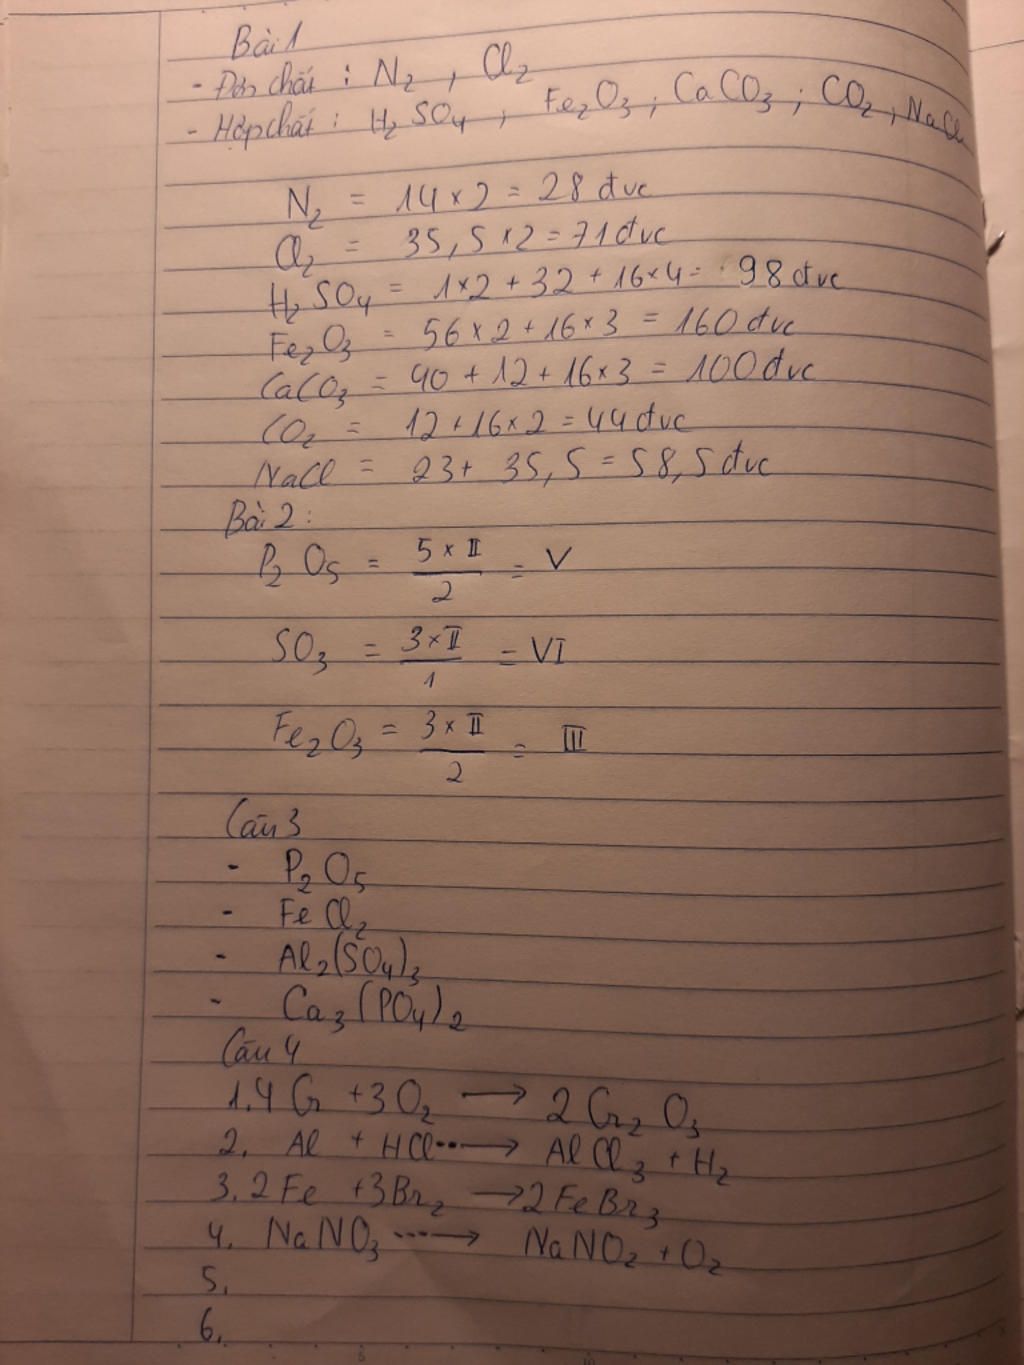 Bài 1
- Đơn chất : N₂ , Cl₂
- Hợp chất : H₂SO₄ ; Fe₂O₃ ; CaCO₃ ; CO₂ , NaCl
N₂ = 14 × 2 = 28 đvc
Cl₂ = 35,5 × 2 = 71 đvc
H₂SO₄ = 1×2 + 32 + 16×4 = 98 đvc
Fe₂O₃ = 56 × 2 + 16 × 3 = 160 đvc
CaCO₃ = 40 + 12 + 16×3 = 100 đvc
CO₂ = 12 + 16×2 = 44 đvc
NaCl = 23 + 35,5 = 58,5 đvc
Bài 2 :
P₂O₅ = (5 × II)/2 = V
SO₃ = (3 × II)/1 = VI
Fe₂O₃ = (3 × II)/2 = III
Câu 3
- P₂O₅
- FeCl₂
- Al₂(SO₄)₃
- Ca₃(PO₄)₂
Câu 4
1. 4Cr + 3O₂ ⟶ 2Cr₂O₃
2. Al + HCl ---→ AlCl₃ + H₂
3. 2Fe + 3Br₂ ⟶ 2FeBr₃
4. NaNO₃ ---→ NaNO₂ + O₂
5.
6.